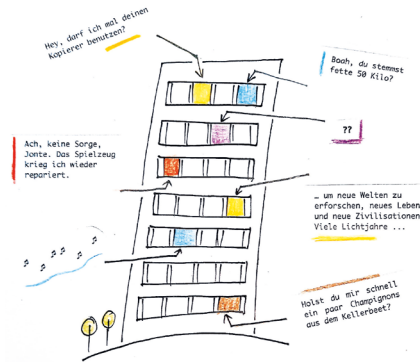 Hey, darf ich mal deinen
Kopierer benutzen?
Boah, du stemmst
fette 50 Kilo?
??
Ach, keine Sorge,
Jonte. Das Spielzeug
krieg ich wieder
repariert.
… um neue Welten zu
erforschen, neues Leben
und neue Zivilisationen
Viele Lichtjahre ...
Holst du mir schnell
ein paar Champignons
aus dem Kellerbeet?